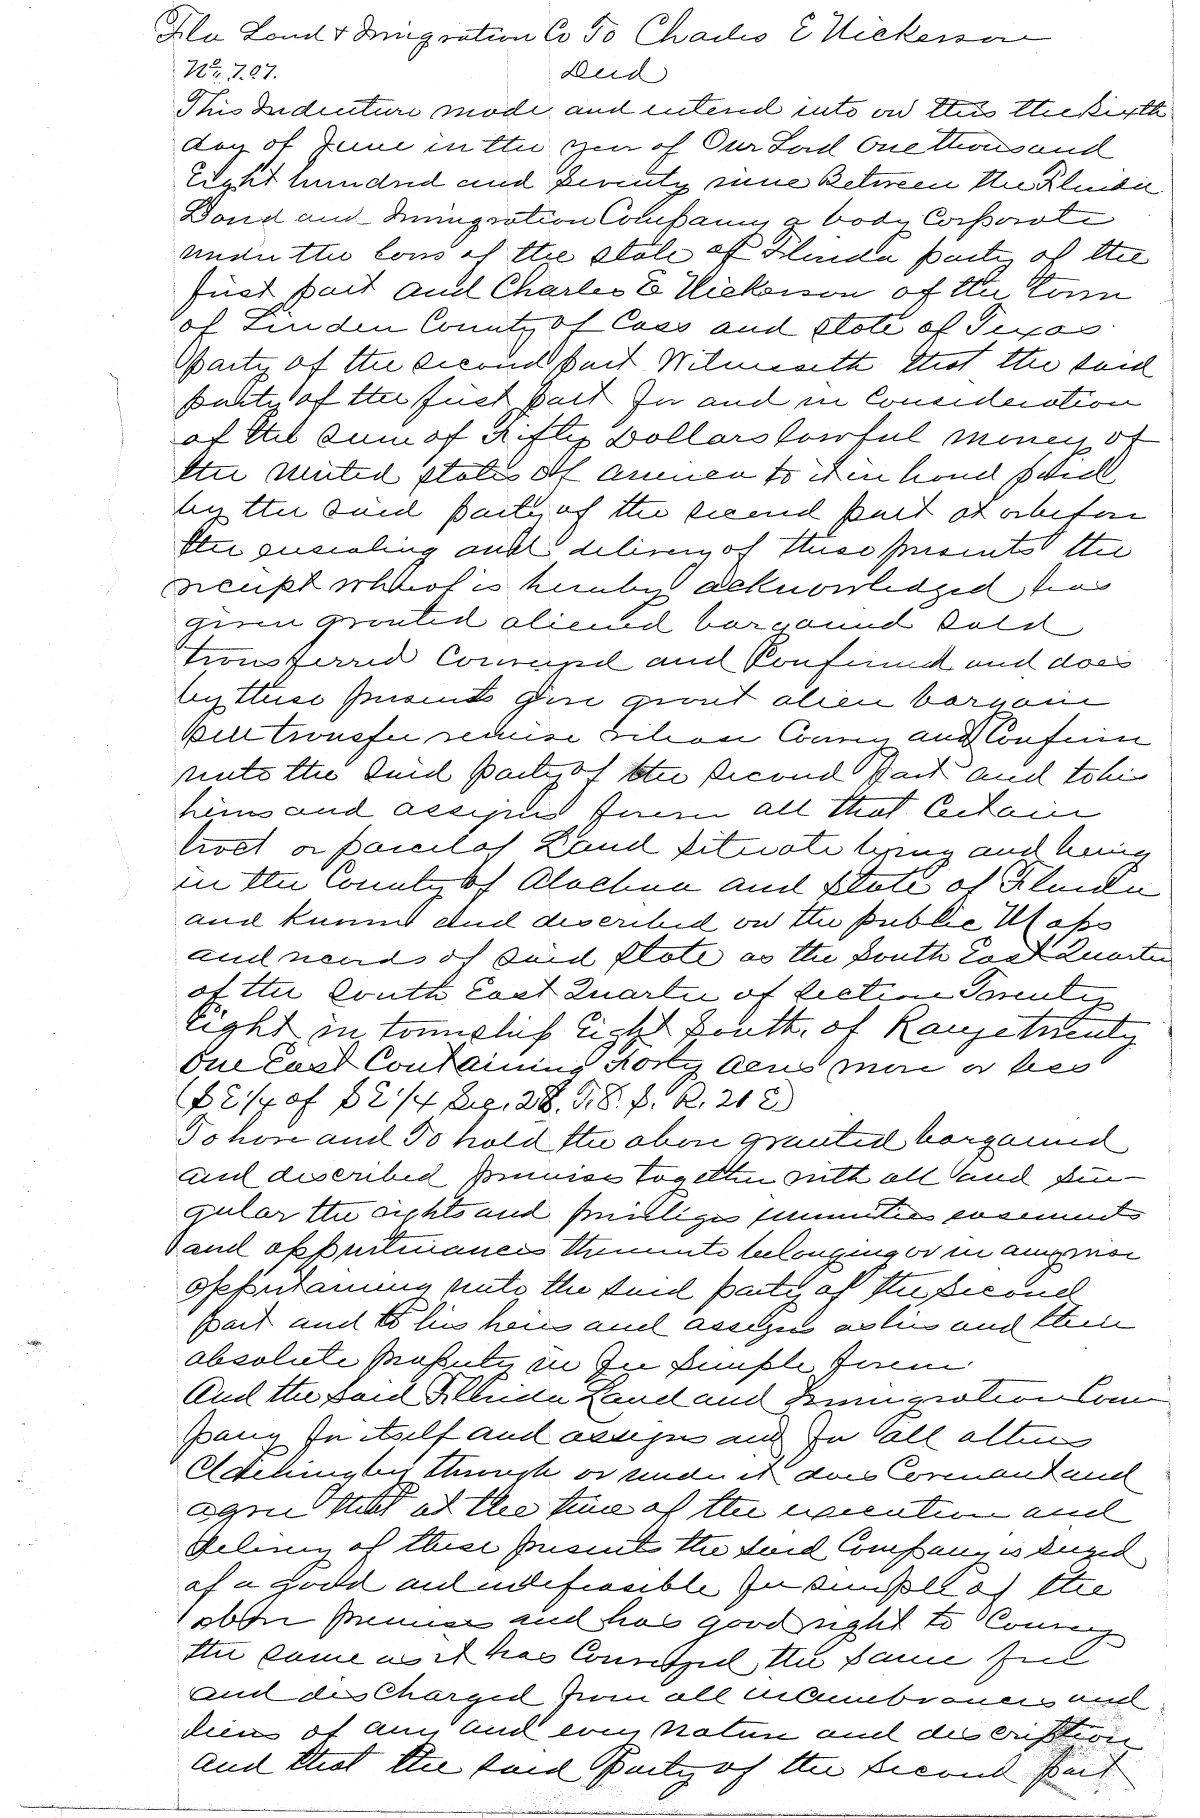 Fla Land & Immigration Co To Charles E Nickerson
No. 707. Deed
This Indenture made and entered into on this the Sixth
day of June in the year of Our Lord One thousand
Eight hundred and Seventy nine Between the Florida
Land and Immigration Company a body Corporate
under the laws of the state of Florida party of the
first part and Charles E Nickerson of the town
of Linden County of Cass and state of Texas
party of the second part Witnesseth that the said
party of the first part for and in Consideration
of the sum of Fifty Dollars lawful money of
the United states of America to it in hand paid
by the said party of the second part at or before
the ensealing and delivery of these presents the
receipt whereof is hereby acknowledged has
given granted aliened bargained Sold
transferred Conveyed and Confirmed and does
by these presents give grant alien bargain
sell transfer remise release Convey and Confirm
unto the said party of the second part and to his
heirs and assigns forever all that Certain
tract or parcel of Land situate lying and being
in the County of Alachua and state of Florida
and known and described on the public Maps
and records of said State as the South East Quarter
of the South East Quarter of Section Twenty
Eight in township Eight South, of Range twenty
One East Containing Forty acres more or less
(S E 1/4 of S E 1/4 Sec. 28. T. 8. S. R. 21 E)
To have and To hold the above granted bargained
and described premises together with all and sin-
gular the rights and priviliges immunities easements
and appurtinances thereunto belonging or in anywise
appertaining unto the said party of the Second
part and to his heirs and assigns as his and their
absolute property in Fee Simple forever.
And the said Florida Land and Immigration Com
pany for itself and assigns and for all others
Claiming by through or under it does Covenant and
agree that at the time of the execution and
delivery of these presents the said Company is seized
of a good and indefeasible fee simple of the
above premises and has good right to Convey
the same as it has Conveyed the same free
and discharged from all incumbrances and
liens of any and every nature and description
and that the said Party of the second part